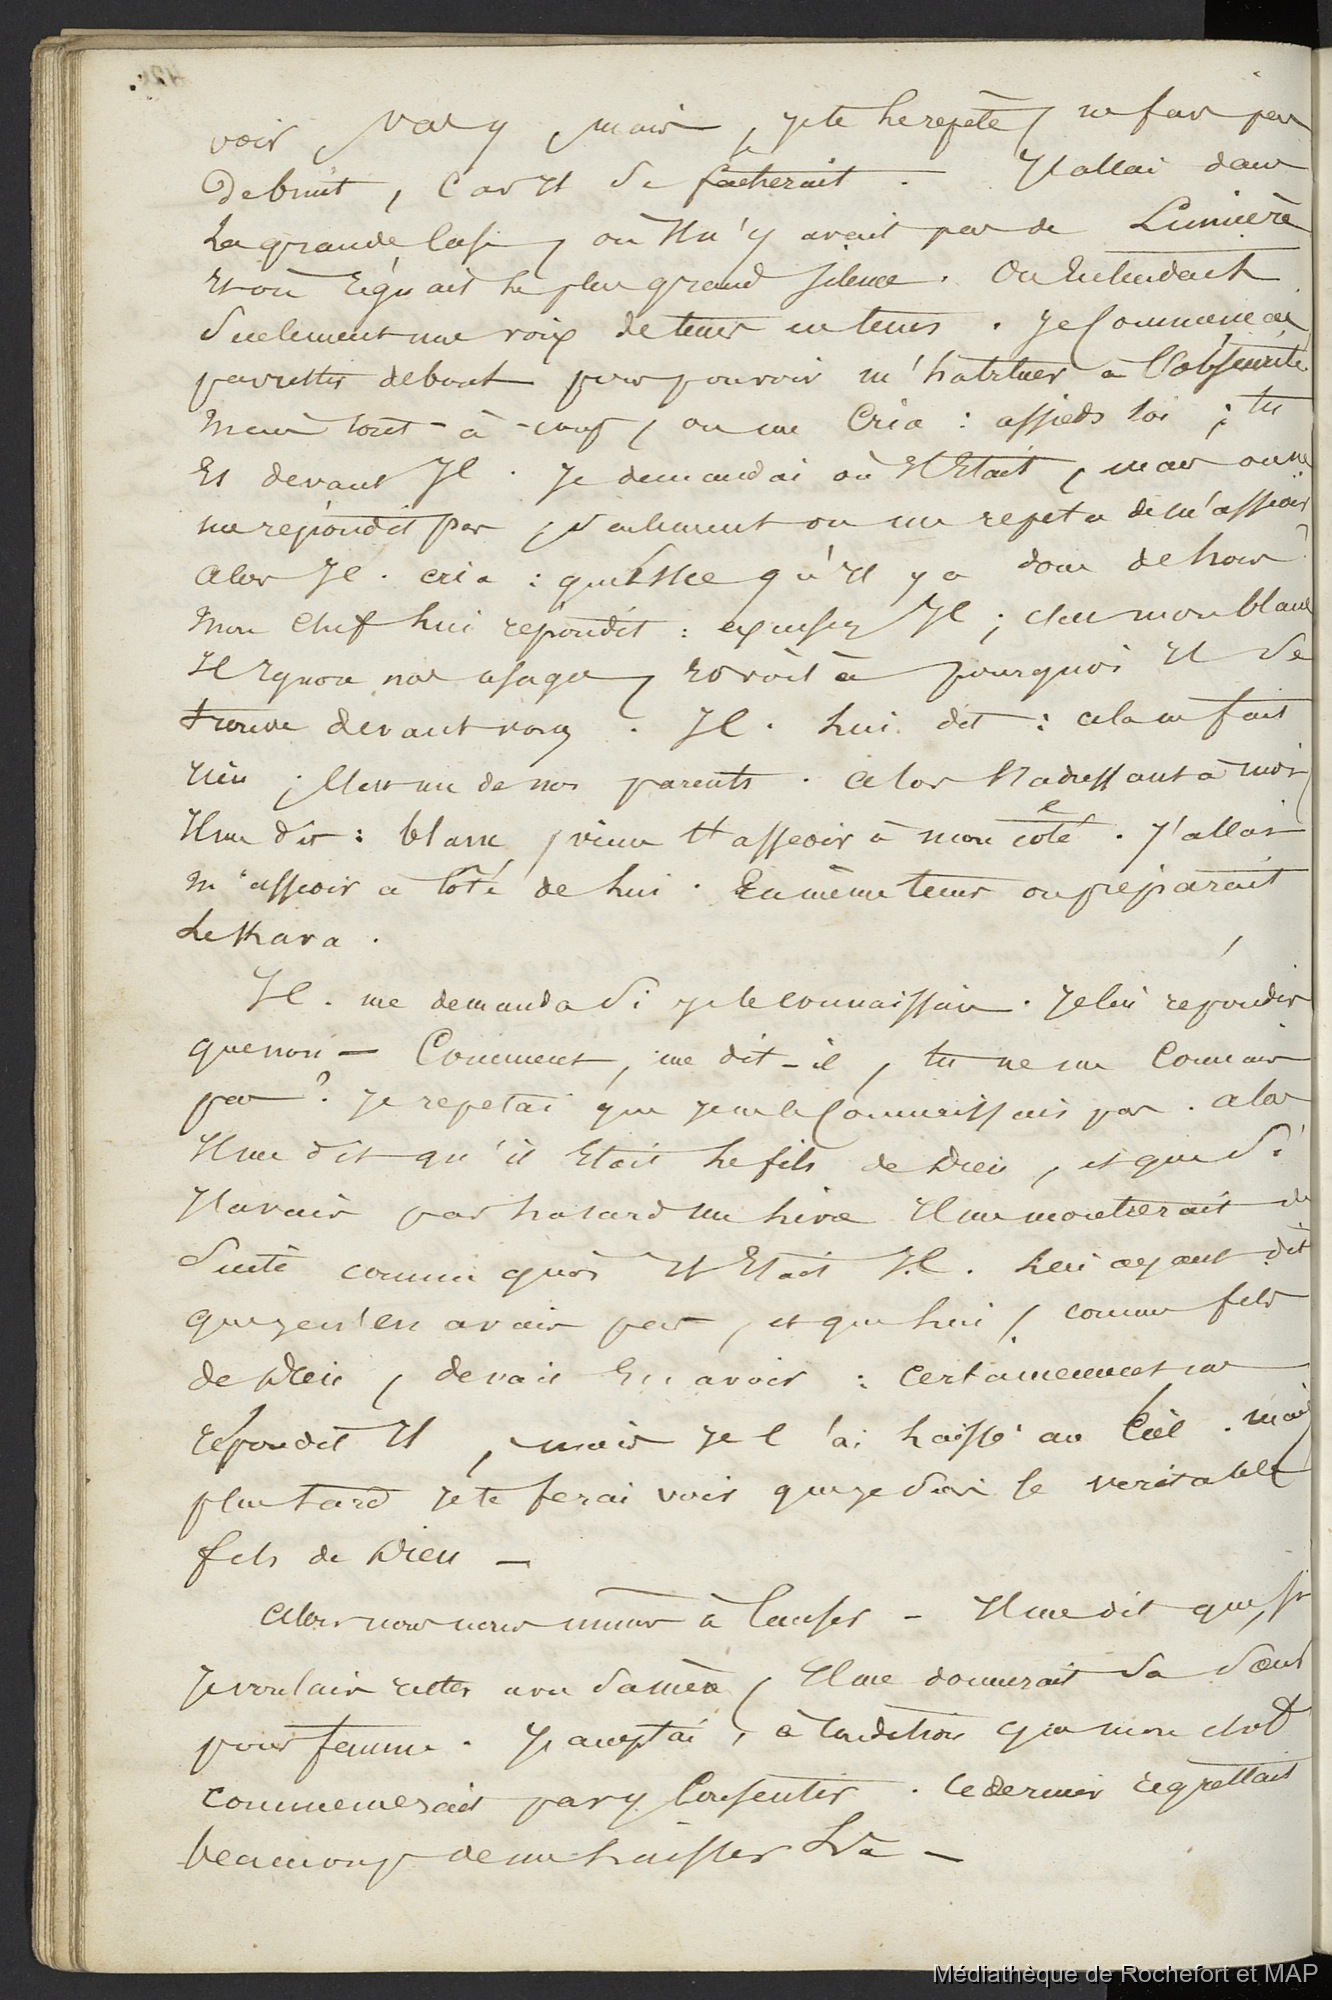 voir vas y mais, je te le repète, ne fais pas
De bruit, Car Il se facherait. J'allai dans
La grande Case, où Il n'y avait pas de Lumière
Et où Régnait le plus grand silence. On Entendait
Seulement une voix de tems en tems. Je Commençai
par rester debout pour pouvoir m'habituer à l'obscurité
Mais tout-à-coup, on me Cria : assieds toi ; tu
Es devant Il. Je demandai où Il Etait, mais on ne
me répondit pas, seulement on me repeta de m'asseoir
alors Il. cria : qu'est ce qu'Il y a donc dehors ?
Mon Chef lui répondit : excusez Il ; c'est mon blanc
Il Ignore nos usages, Et voilà pourquoi Il se
trouve devant vous. Il. lui dit : cela ne fait
rien ; C'est un de nos parents. alors S'adressant à moi
Il me dit : blanc, viens t'asseoir à mon coté. J'allai
m'asseoir à Côté de lui. En même tems on préparait
Le Kava.
Il. me demanda Si je le connaissais. Je lui répondis
que non — Comment, me dit-il, tu ne me Connais
pas ? Je repetai que je ne le Connaissais pas. alors
Il me dit qu'il Etait le fils de Dieu, et que Si
J'avais par hasard un livre Il me montrerait de
Suite comme quoi Il Etait Il. Lui ayant dit
que je n'en avais pas, et que lui, comme fils
de Dieu, devait En avoir : certainement me
répondit Il, mais je l'ai laissé au Ciel. mais
plus tard je te ferai voir que je suis le veritable
fils de Dieu —
alors nous nous mimes à Causer — Il me dit que si
Je voulais rester avec sa mère, Il me donnerait sa sœur
pour femme. J'acceptai, à Condition que mon chef
commencerait par y Consentir. Ce dernier regrettait
beaucoup de me laisser Là —
Médiathèque de Rochefort et MAP